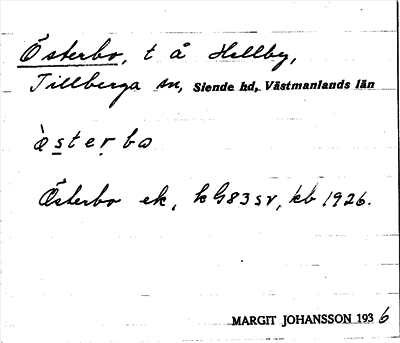 Österbo, t å Hellby,
Tillberga sn, Siende hd, Västmanlands län
ὰsterbω
Österbo ek, k G83sv, kb 1926.
MARGIT JOHANSSON 1936